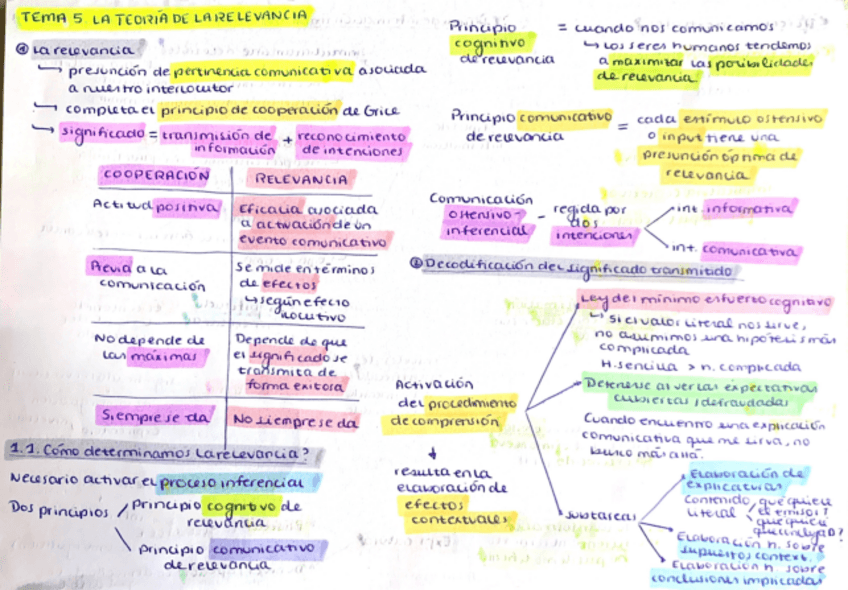 TEMA 5. LA TEORÍA DE LA RELEVANCIA
① La relevancia
↳ presunción de pertinencia comunicativa asociada
a nuestro interlocutor
↳ completa el principio de cooperación de Grice
↳ significado = transmisión de información + reconocimiento de intenciones
COOPERACIÓN
RELEVANCIA
Actitud positiva
Eficacia asociada
a activación de un
evento comunicativo
Previa a la
comunicación
Se mide en términos
de efectos
↳ según efecto
ilocutivo
No depende de
las máximas
Depende de que
el significado se
transmita de
forma exitosa
Siempre se da
No siempre se da
1.1. Cómo determinamos la relevancia?
Necesario activar el proceso inferencial
Dos principios
Principio cognitivo de
relevancia
Principio comunicativo
de relevancia
Principio
cognitivo
de relevancia
= cuando nos comunicamos
↳ los seres humanos tendemos
a maximizar las posibilidades
de relevancia.
Principio comunicativo
de relevancia
= cada estímulo ostensivo
o input tiene una
presunción óptima de
relevancia
Comunicación
ostensivo-
inferencial
- regida por
dos
intenciones
int. informativa
int. comunicativa
② Decodificación del significado transmitido
Activación
del procedimiento
de comprensión
↓
resulta en la
elaboración de
efectos
contextuales
Ley del mínimo esfuerzo cognitivo
↳ si el valor literal nos sirve,
no asumimos una hipótesis más
complicada
H. sencilla > h. complicada
Detenerse al ver las expectativas
cubiertas / defraudadas
Cuando encuentro una explicación
comunicativa que me sirva, no
busco más allá.
subtareas
Elaboración de
explicaturas
Contenido
literal
qué quiere
el emisor?
qué quiere
Elaboración h. sobre
supuestos context.
Elaboración h. sobre
conclusiones implicadas